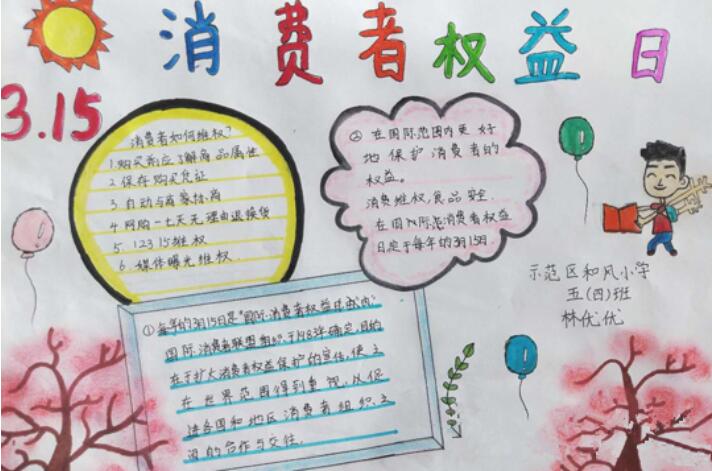 消费者权益日
3.15
消费者如何维权?
1.购买前应了解商品属性
2.保存购买凭证
3.自动与商家协商
4.网购一七天无理由退换货
5.12315维权
6.媒体曝光维权.
② 在国际范围内更好
地保护消费者的
权益。
消费维权,食品安全.
在国际消费者权益
日定于每年的3月15日.
示范区和风小学
五(四)班
林优优
①每年的3月15日是"国际消费者权益日
国际消费者联盟组织于1983年确定,目的
在于扩大消费者权益保护的宣传,使之
在世界范围得到重视,以促
进各国和地区消费者组织之
间的合作与交往.